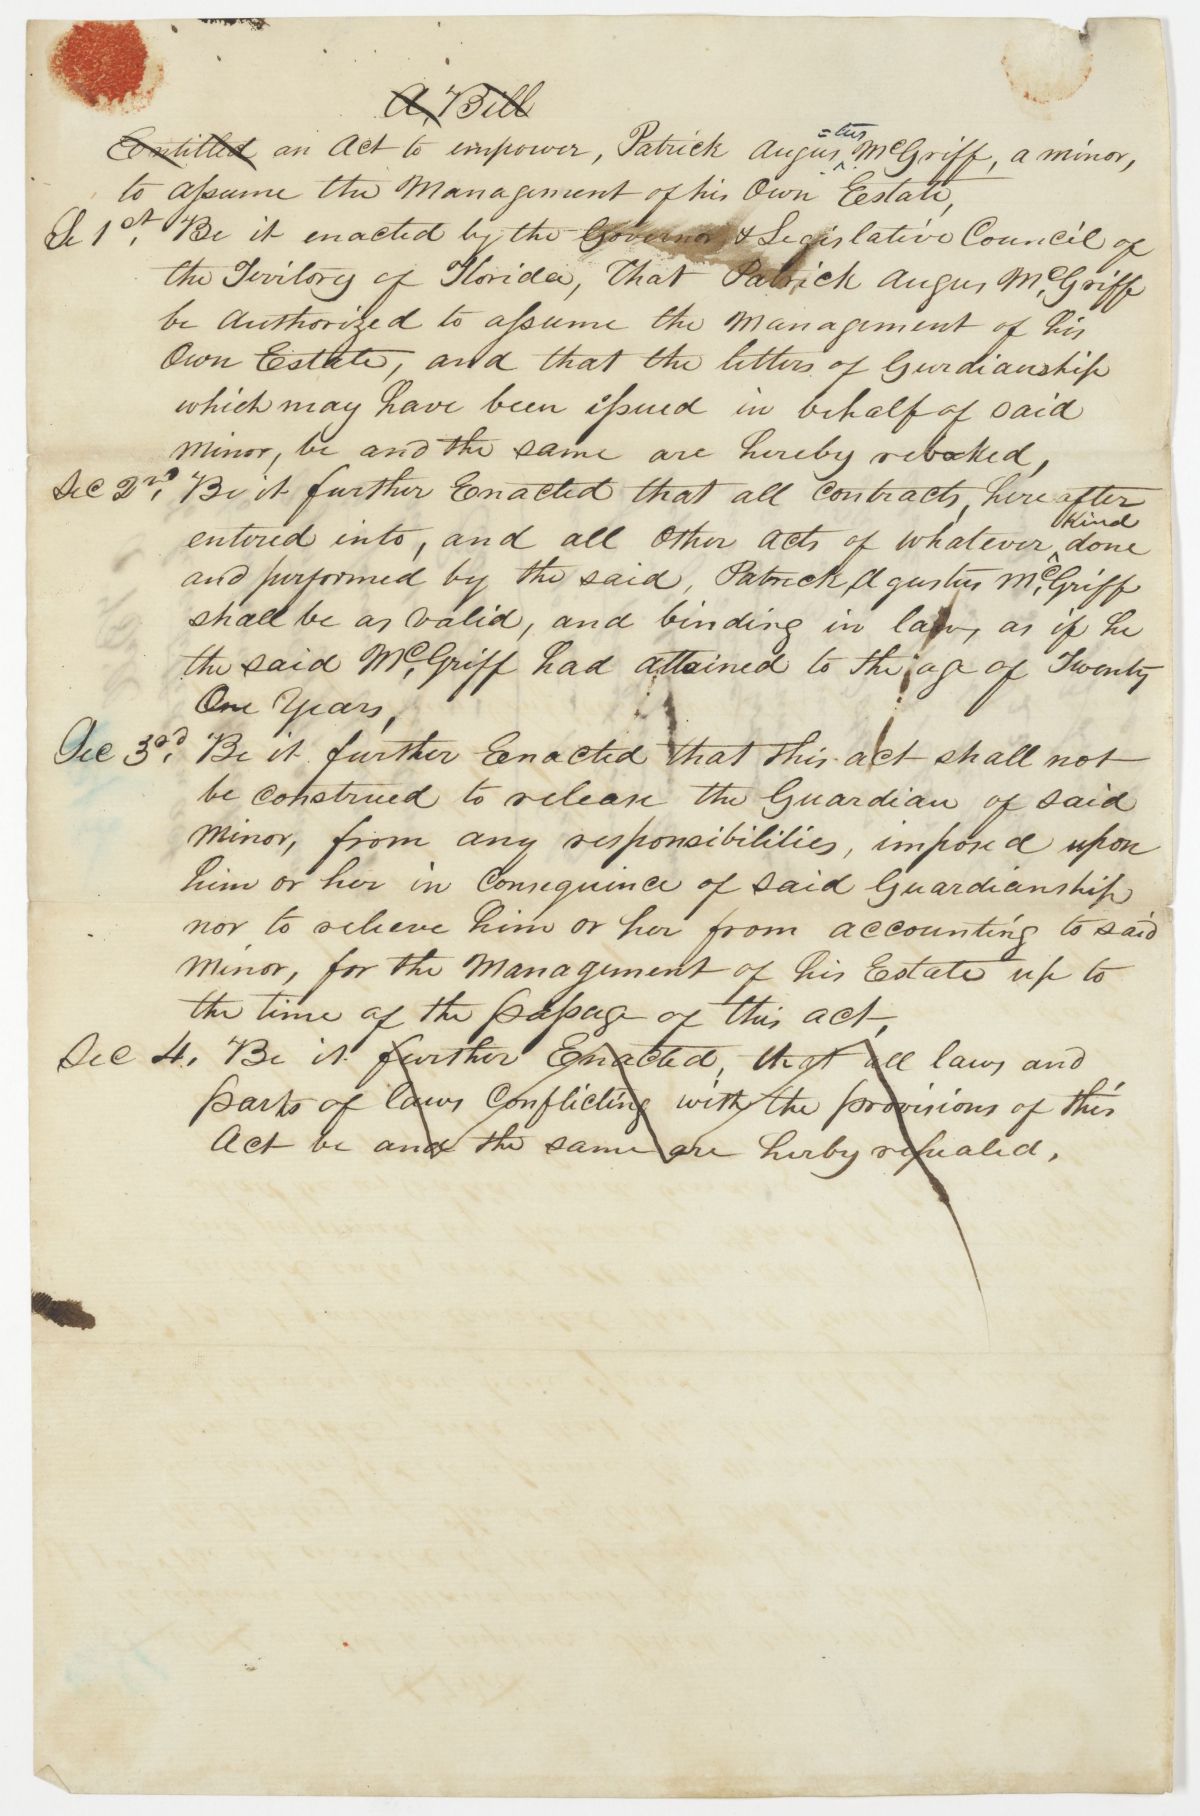 A Bill
Entitled an Act to empower, Patrick Augus =tus McGriff, a minor,
to assume the Management of his Own Estate,
Se 1st, Be it enacted by the Governor & Legislative Council of
the Teritory of Florida, That Patrick Augus McGriff
be Authorized to assume the Management of his
Own Estate, and that the letters of Gurdianship
which may have been issued in behalf of said
Minor, be and the same are hereby revoked,
Sec 2nd, Be it further Enacted that all Contracts, hereafter
entered into, and all Other Acts of whatever kind done
and performed by the said, Patrick, Agustus McGriff
shall be as valid, and binding in law, as if he
the said McGriff had attained to the age of Twenty
One Years,
Sec 3rd, Be it further Enacted that this act shall not
be construed to release the Guardian of said
Minor, from any responsibilities, imposed upon
him or her in Consequence of said Guardianship
nor to releeve him or her from accounting to said
Minor, for the Management of his Estate up to
the time of the passage of this act,
Sec 4. Be it further Enacted, that all laws and
parts of laws Conflicting with the provisions of this
Act be and the same are herby repealed.